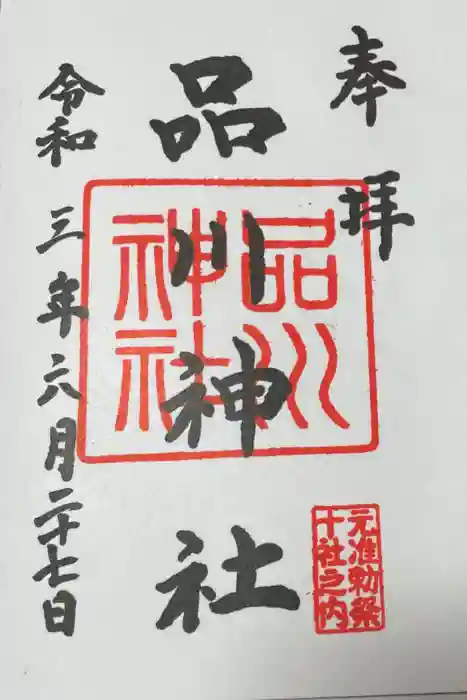 奉拝
品川神社
品川
神社
元准勅祭
十社之内
令和三年六月二十七日